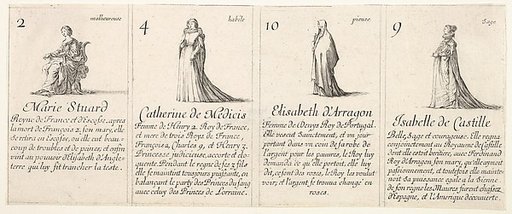 2 malheureuse
Marie Stuard
Reyne de France et d'Escosse, apres
la mort de François 2. son mary, elle
se retira en Escosse, ou elle eut beau=
coup de troubles et de peines, et enfin
vint au pouvoir d'Elisabeth d'Angle=
terre qui luy fit trancher la teste.
4 habile
Catherine de Medicis
Femme de Henry 2. Roy de France,
et mere de trois Roys de France,
François 2, Charles 9, et Henry 3.
Princesse judicieuse, accorte et elo=
quente. Pendant le regne de ses 3 fils
elle se maintint tousjours puissante, en
balançant le party des Princes du sang
avec celuy des Princes de Lorraine.
10 pieuse
Elisabeth d'Arragon
Femme de Denys Roy de Portugal.
Elle vescut Sainctement, et un jour
portant dans un coin de sa robe de
l'argent pour les pauvres, le Roy luy
demanda ce qu'elle portoit, elle luy
dit, ce sont des roses, le Roy les voulut
voir, et l'argent se trouva changé en
roses.
9 Sage
Isabelle de Castille
Belle, Sage et courageuse. Elle regna
conjoinctement au Royaume de Castille
dont elle estoit heritiere, avec Ferdinand
Roy d'Arragon son mary, qu'elle aimoit
passionnement, et toutefois elle mainte=
noit sa puissance egale a la sienne.
de son regne les Maures furent chassez
d'Espagne, et l'Amerique decouverte.